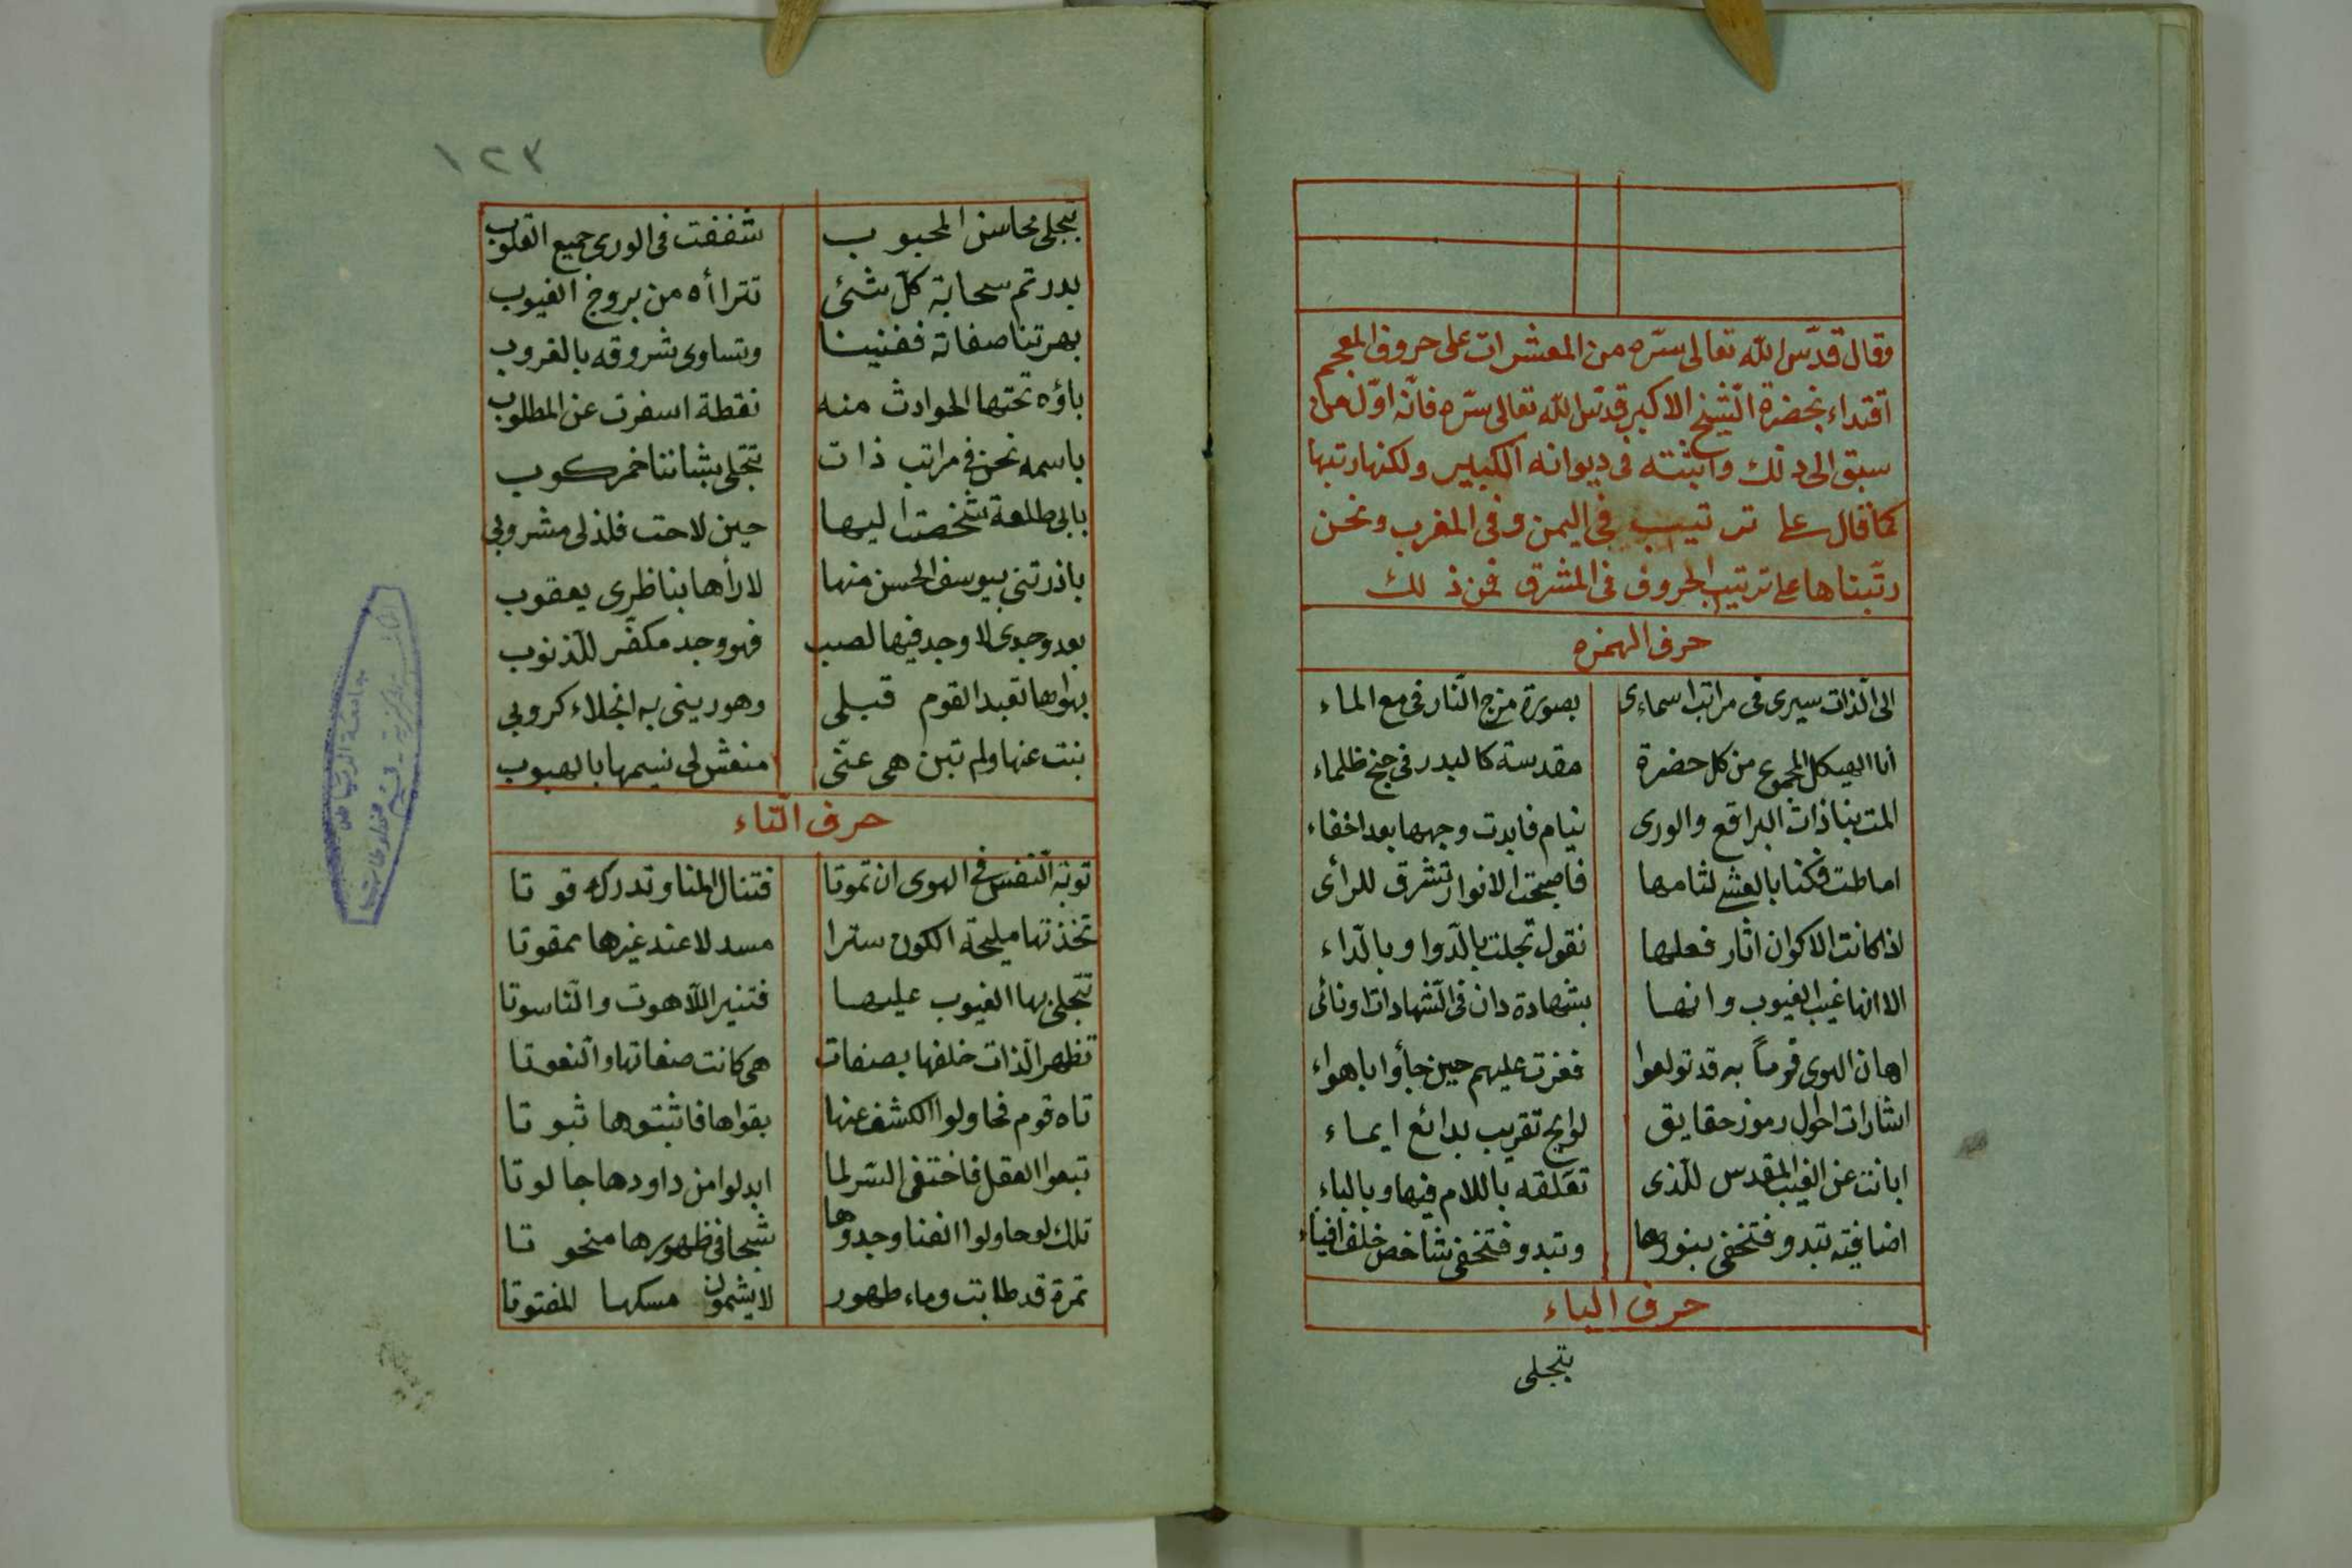 وقال قدّس الله تعالى سرّه من المعشرات على حروف المعجم
اقتداء بحضرة الشيخ الاكبر قدّس الله تعالى سرّه فانّه اوّل من
سبق الى ذلك واثبته فى ديوانه الكبير ولكنها رتبها
كما قال على ترتيب فى اليمن وفى المغرب ونحن
رتّبناها على ترتيب الحروف فى المشرق فمن ذلك
حرف الهمزه
الى الذات سيرى فى مراتب اسماءى بصورة مزج النّار فى مع الماء
انا الهيكل المجموع من كل حضرة مقدسة كالبدر فى جنح ظلماء
المت بنا ذات البراقع والورى نيام فابدت وجهها بعد اخفاء
اماطت فكنا بالعشى لثامها فاصبحت الانوار تشرق للرأى
اذا كانت الاكوان اثار فعلها نقول تجلت بالدّوا وبالدّاء
الا انها غيب الغيوب وانها بشهادة دان فى الشهادات او نائى
اهان الهوى قوماً به قد تولعوا ففرت عليهم حين جأوا باهواء
اشارات احوال رموز حقايق لوايح تقريب بدائع ايماء
ابانت عن الغيب المقدس للذى تعلقه باللام فيها وبالباء
اضافيته تبدو فتخفى بنورها وتبدو فتخفى شاخص خلف افياء
حرف الباء
بتجلى
١٢٣
بتجلى محاسن المحبوب شففت فى الورى جميع القلوب
بدر تم سحابة كلّ شئى تتراأه من بروج الغيوب
بهرتنا صفاته ففنينا وتساوى شروقه بالغروب
باؤه تحتها الحوادث منه نقطة اسفرت عن المطلوب
باسمه نحن فى مراتب ذات تتجلى بشاننا خمر كوب
بابى طلعة شخصت اليها حين لاحت فلذ لى مشروبى
باذرتنى بيوسف الحسن منها لا رأها بناظرى يعقوب
بعد وجدى لا وجد فيها لصب فهو وجد مكفّر للذنوب
بهواها تعبد القوم قبلى وهو دينى به انجلاء كروبى
بنت عنها ولم تبن هى عنّى منعش لى نسيمها بالهبوب
حرف التّاء
توبة النفس فى الهوى ان تموتا فتنال المنا وتدركه قوتا
تخذتها مليحة الكون سترا مسدلا عند غيرها ممقوتا
تتجلى بها الغيوب عليها فتنير اللاهوت والنّاسوتا
تظهر الذات خلفها بصفات هى كانت صفاتها والنعوتا
تاه قوم فحاولوا الكشف عنها بقواها فاثبتوها ثبوتا
تبعوا العقل فاختفى السر لما ابدلوا من داودها جالوتا
تلك لو حاولوا الفنا وجدوها شبحا فى ظهورها منحوتا
تمرة قد طابت وماء طهور لا يشمون مسكها المفتوتا